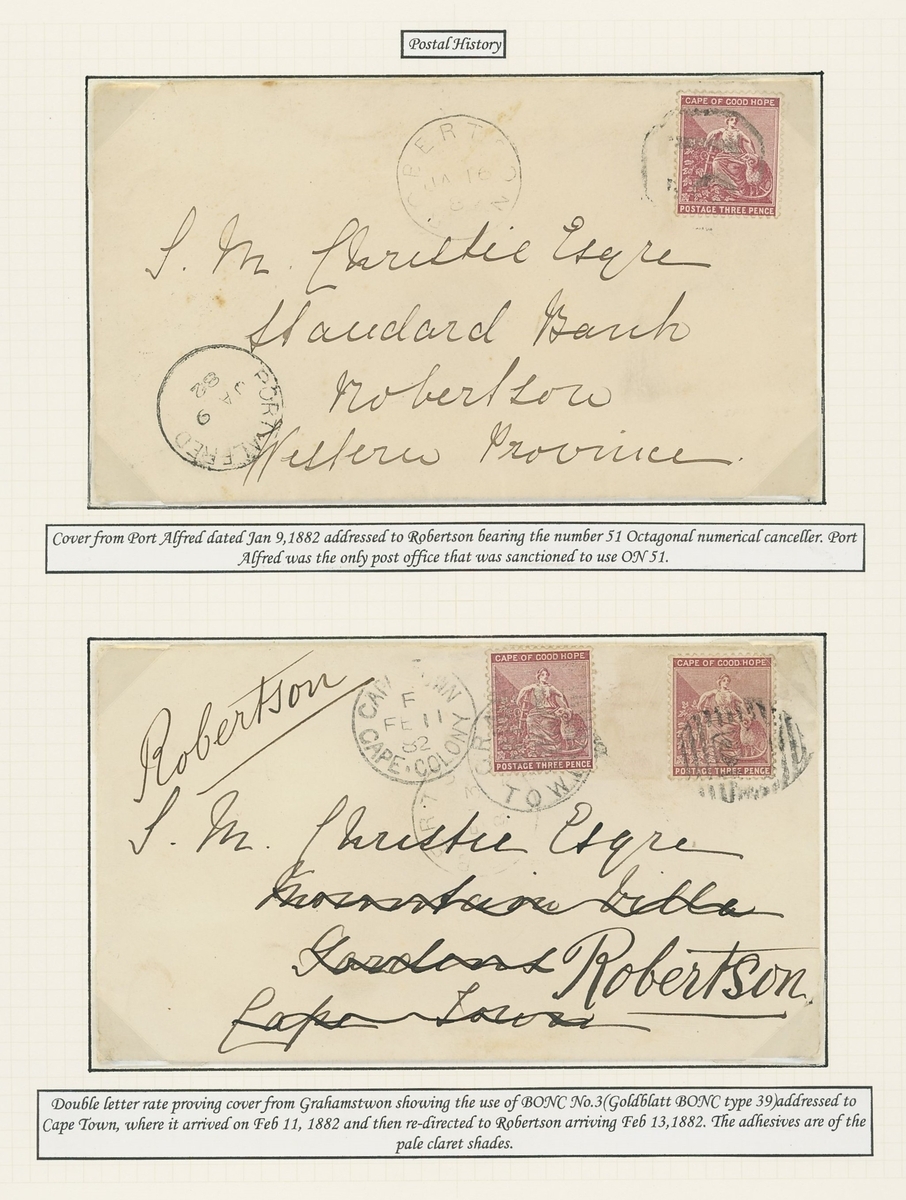 Postal History
CAPE OF GOOD HOPE
POSTAGE THREE PENCE
JA 16
S. M. Christie Esqre
Standard Bank
Robertson
Western Province.
PORT ALFRED
JA
9
82
Cover from Port Alfred dated Jan 9,1882 addressed to Robertson bearing the number 51 Octagonal numerical canceller. Port
Alfred was the only post office that was sanctioned to use ON 51.
Robertson
F
FE 11
82
CAPE · COLONY
CAPE OF GOOD HOPE
POSTAGE THREE PENCE
TOWN
CAPE OF GOOD HOPE
POSTAGE THREE PENCE
S. M. Christie Esqre
Mountain Villa
Gardens Robertson
Cape Town
Double letter rate proving cover from Grahamstwon showing the use of BONC No.3(Goldblatt BONC type 39)addressed to
Cape Town, where it arrived on Feb 11, 1882 and then re-directed to Robertson arriving Feb 13,1882. The adhesives are of the
pale claret shades.